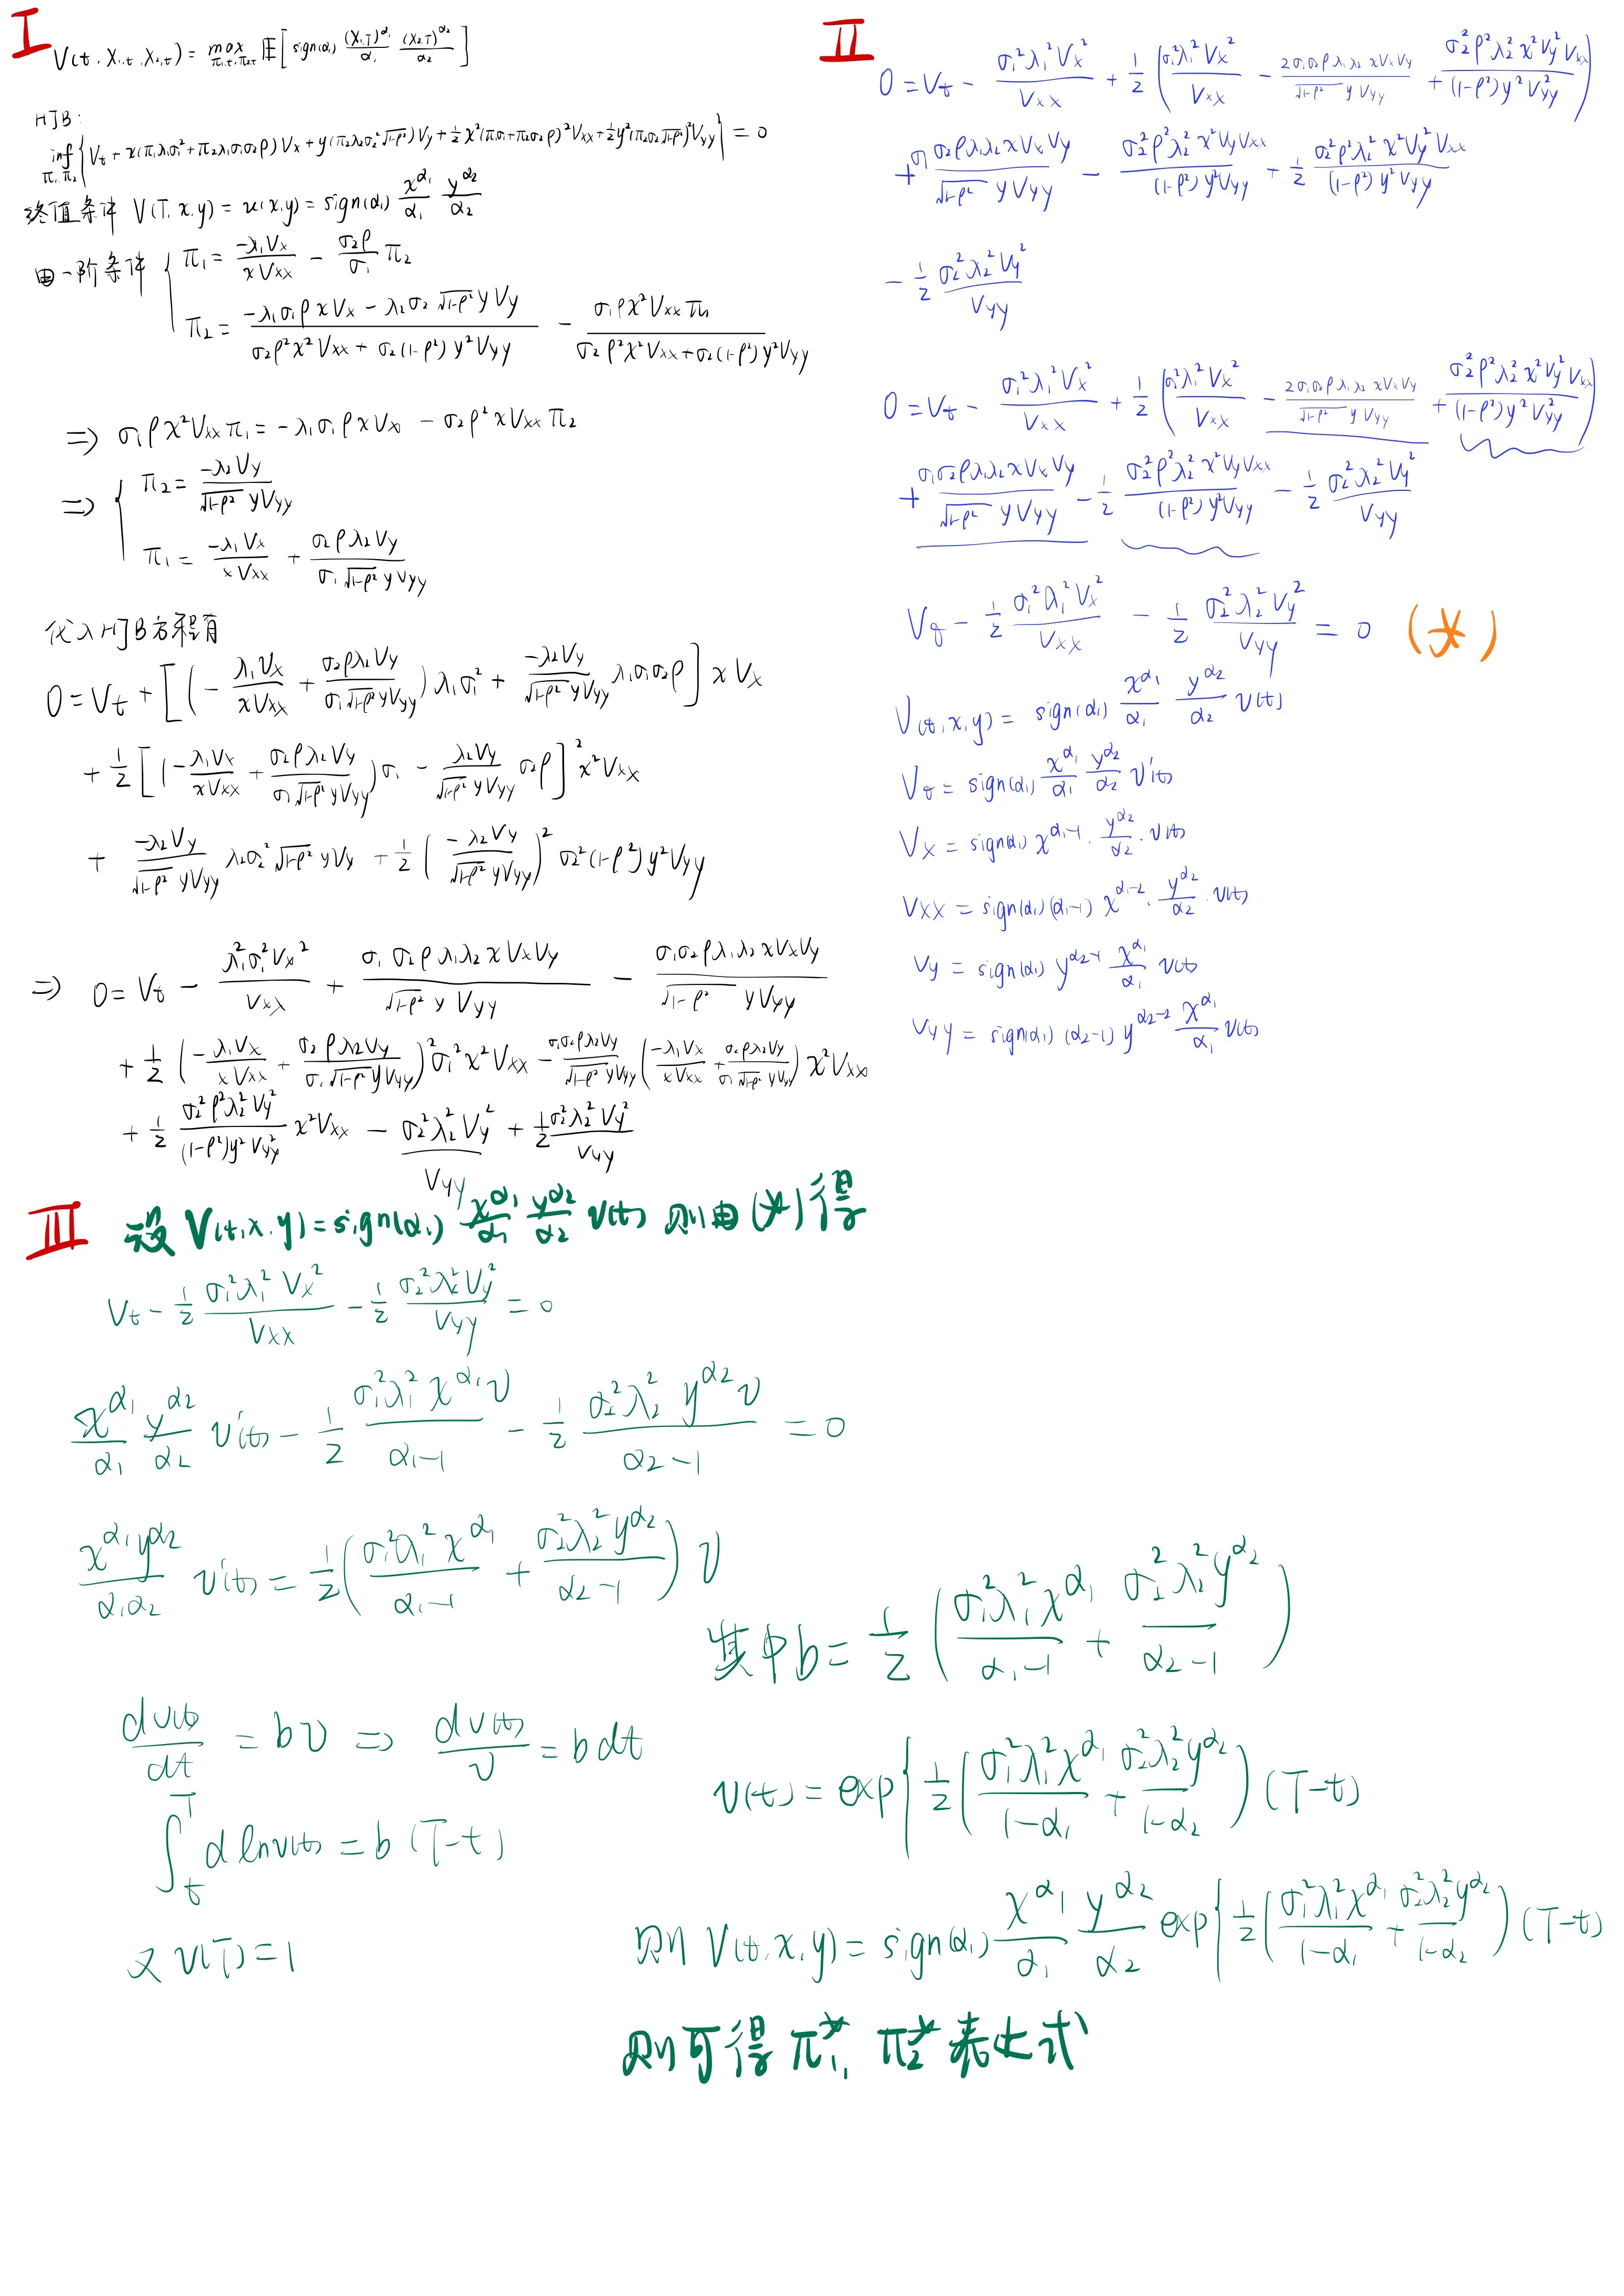 I
V(t, X₁,t, X₂,t) = max_{π₁,t, π₂,t} E[sign(α₁) (X₁,T)^α₁/α₁ (X₂,T)^α₂/α₂]
HJB:
inf_{π₁,π₂} {V_t + x(π₁λ₁σ₁² + π₂λ₁σ₁σ₂ρ)V_x + y(π₂λ₂σ₂²√(1-ρ²))V_y + ½x²(π₁σ₁+π₂σ₂ρ)²V_xx + ½y²(π₂σ₂√(1-ρ²))²V_yy} = 0
终值条件 V(T,x,y) = u(x,y) = sign(α₁) x^α₁/α₁ y^α₂/α₂
由一阶条件 { π₁ = -λ₁V_x/(xV_xx) - (σ₂ρ/σ₁)π₂
π₂ = (-λ₁σ₁ρxV_x - λ₂σ₂√(1-ρ²)yV_y)/(σ₂ρ²x²V_xx + σ₂(1-ρ²)y²V_yy) - σ₁ρx²V_xxπ₁/(σ₂ρ²x²V_xx + σ₂(1-ρ²)y²V_yy)
⇒ σ₁ρx²V_xxπ₁ = -λ₁σ₁ρxV_x - σ₂ρ²xV_xxπ₂
⇒ { π₂ = -λ₂V_y/(√(1-ρ²)yV_yy)
π₁ = -λ₁V_x/(xV_xx) + σ₂ρλ₂V_y/(σ₁√(1-ρ²)yV_yy)
代入HJB方程有
0 = V_t + [(-λ₁V_x/(xV_xx) + σ₂ρλ₂V_y/(σ₁√(1-ρ²)yV_yy))λ₁σ₁² + -λ₂V_y/(√(1-ρ²)yV_yy) λ₁σ₁σ₂ρ] xV_x
+ ½[(-λ₁V_x/(xV_xx) + σ₂ρλ₂V_y/(σ₁√(1-ρ²)yV_yy))σ₁ - λ₂V_y/(√(1-ρ²)yV_yy) σ₂ρ]² x²V_xx
+ -λ₂V_y/(√(1-ρ²)yV_yy) λ₂σ₂²√(1-ρ²)yV_y + ½(-λ₂V_y/(√(1-ρ²)yV_yy))² σ₂²(1-ρ²)y²V_yy
⇒ 0 = V_t - λ₁²σ₁²V_x²/V_xx + σ₁σ₂ρλ₁λ₂xV_xV_y/(√(1-ρ²)yV_yy) - σ₁σ₂ρλ₁λ₂xV_xV_y/(√(1-ρ²)yV_yy)
+ ½(-λ₁V_x/(xV_xx) + σ₂ρλ₂V_y/(σ₁√(1-ρ²)yV_yy))²σ₁²x²V_xx - σ₁σ₂ρλ₂V_y/(√(1-ρ²)yV_yy) (-λ₁V_x/(xV_xx) + σ₂ρλ₂V_y/(σ₁√(1-ρ²)yV_yy)) x²V_xx
+ ½ σ₂²ρ²λ₂²V_y²/((1-ρ²)y²V_yy²) x²V_xx - σ₂²λ₂²V_y²/V_yy + ½σ₂²λ₂²V_y²/V_yy
II
0 = V_t - σ₁²λ₁²V_x²/V_xx + ½(σ₁²λ₁²V_x²/V_xx - 2σ₁σ₂ρλ₁λ₂xV_xV_y/(√(1-ρ²)yV_yy) + σ₂²ρ²λ₂²x²V_y²V_xx/((1-ρ²)y²V_yy²))
+ σ₁σ₂ρλ₁λ₂xV_xV_y/(√(1-ρ²)yV_yy) - σ₂²ρ²λ₂²x²V_yV_xx/((1-ρ²)y²V_yy) + ½ σ₂²ρ²λ₂²x²V_y²V_xx/((1-ρ²)y²V_yy)
- ½ σ₂²λ₂²V_y²/V_yy
0 = V_t - σ₁²λ₁²V_x²/V_xx + ½(σ₁²λ₁²V_x²/V_xx - 2σ₁σ₂ρλ₁λ₂xV_xV_y/(√(1-ρ²)yV_yy) + σ₂²ρ²λ₂²x²V_y²V_xx/((1-ρ²)y²V_yy²))
+ σ₁σ₂ρλ₁λ₂xV_xV_y/(√(1-ρ²)yV_yy) - ½ σ₂²ρ²λ₂²x²V_yV_xx/((1-ρ²)y²V_yy) - ½ σ₂²λ₂²V_y²/V_yy
V_t - ½ σ₁²λ₁²V_x²/V_xx - ½ σ₂²λ₂²V_y²/V_yy = 0 (*)
V(t,x,y) = sign(α₁) x^α₁/α₁ y^α₂/α₂ v(t)
V_t = sign(α₁) x^α₁/α₁ y^α₂/α₂ v'(t)
V_x = sign(α₁) x^(α₁-1) · y^α₂/α₂ · v(t)
V_xx = sign(α₁)(α₁-1) x^(α₁-2) · y^α₂/α₂ · v(t)
V_y = sign(α₁) y^(α₂-1) x^α₁/α₁ v(t)
V_yy = sign(α₁)(α₂-1) y^(α₂-2) x^α₁/α₁ v(t)
III
设 V(t,x,y) = sign(α₁) x^α₁/α₁ y^α₂/α₂ v(t) 则由(*)得
V_t - ½ σ₁²λ₁²V_x²/V_xx - ½ σ₂²λ₂²V_y²/V_yy = 0
x^α₁/α₁ y^α₂/α₂ v'(t) - ½ σ₁²λ₁²x^α₁v/(α₁-1) - ½ σ₂²λ₂²y^α₂v/(α₂-1) = 0
x^α₁y^α₂/(α₁α₂) v'(t) = ½(σ₁²λ₁²x^α₁/(α₁-1) + σ₂²λ₂²y^α₂/(α₂-1)) v
dv(t)/dt = bv ⇒ dv(t)/v = b dt
∫_t^T d ln v(t) = b(T-t)
又 v(T) = 1
其中 b = ½(σ₁²λ₁²x^α₁/(α₁-1) + σ₂²λ₂²y^α₂/(α₂-1))
v(t) = exp{½(σ₁²λ₁²x^α₁/(1-α₁) + σ₂²λ₂²y^α₂/(1-α₂))(T-t)
则 V(t,x,y) = sign(α₁) x^α₁/α₁ y^α₂/α₂ exp{½(σ₁²λ₁²x^α₁/(1-α₁) + σ₂²λ₂²y^α₂/(1-α₂))(T-t)
则可得 π₁*, π₂* 表达式